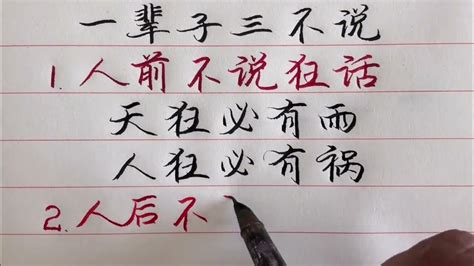 一辈子三不说
1.人前不说狂话
天狂必有雨
人狂必有祸
2.人后不